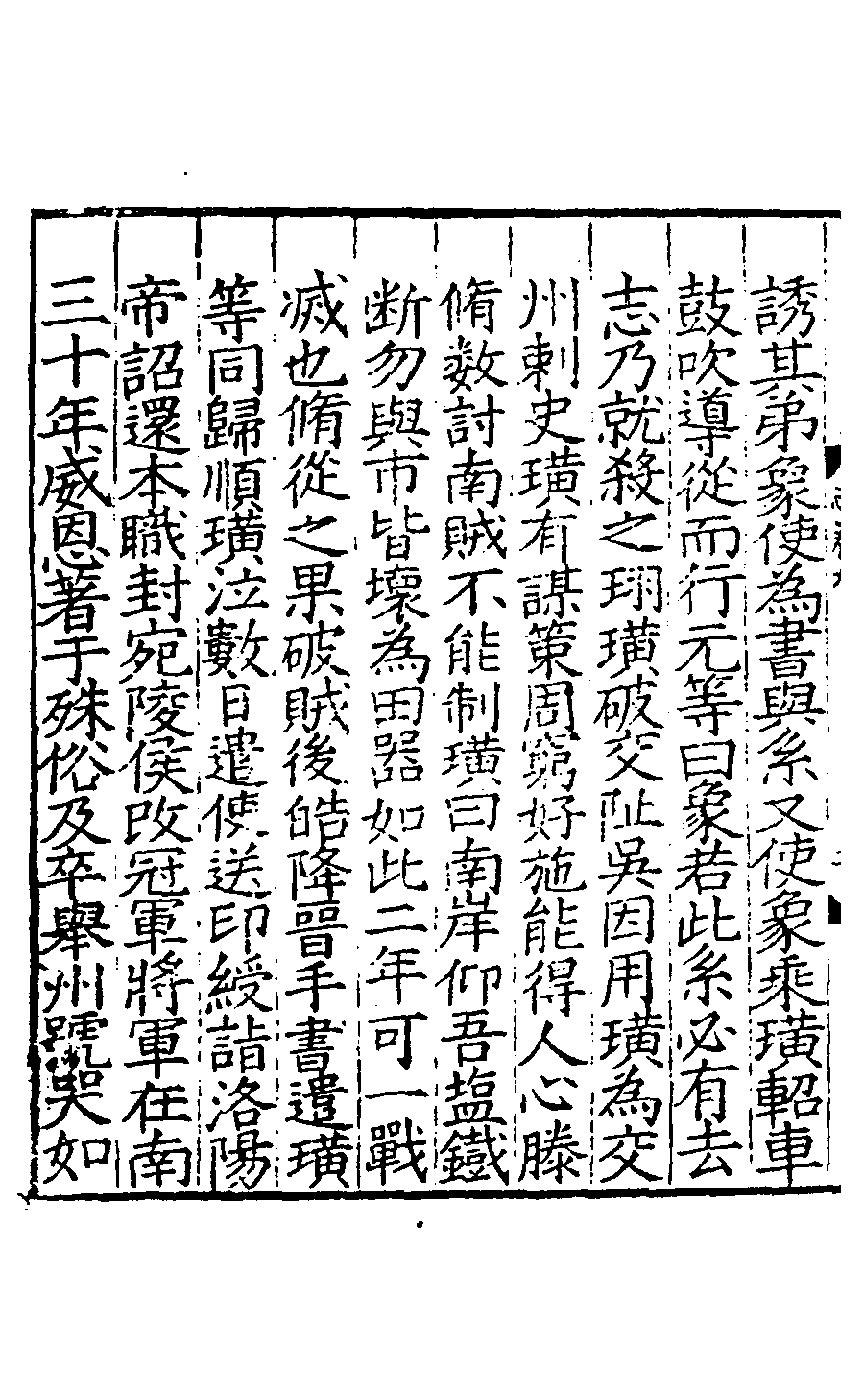 誘其弟象使為書與系又使象乘璜軺車
鼓吹導從而行元等曰象若此系必有去
志乃就殺之珝璜破交阯吳因用璜為交
州刺史璜有謀策周窮好施能得人心滕
脩数討南賊不能制璜曰南岸仰吾塩鐵
断勿與市皆壞為田器如此二年可一戰
滅也脩從之果破賊後皓降晉手書遣璜
等同歸順璜泣數日遣使送印綬詣洛陽
帝詔還本職封宛陵侯改冠軍將軍在南
三十年威恩著于殊俗及卒舉州號哭如